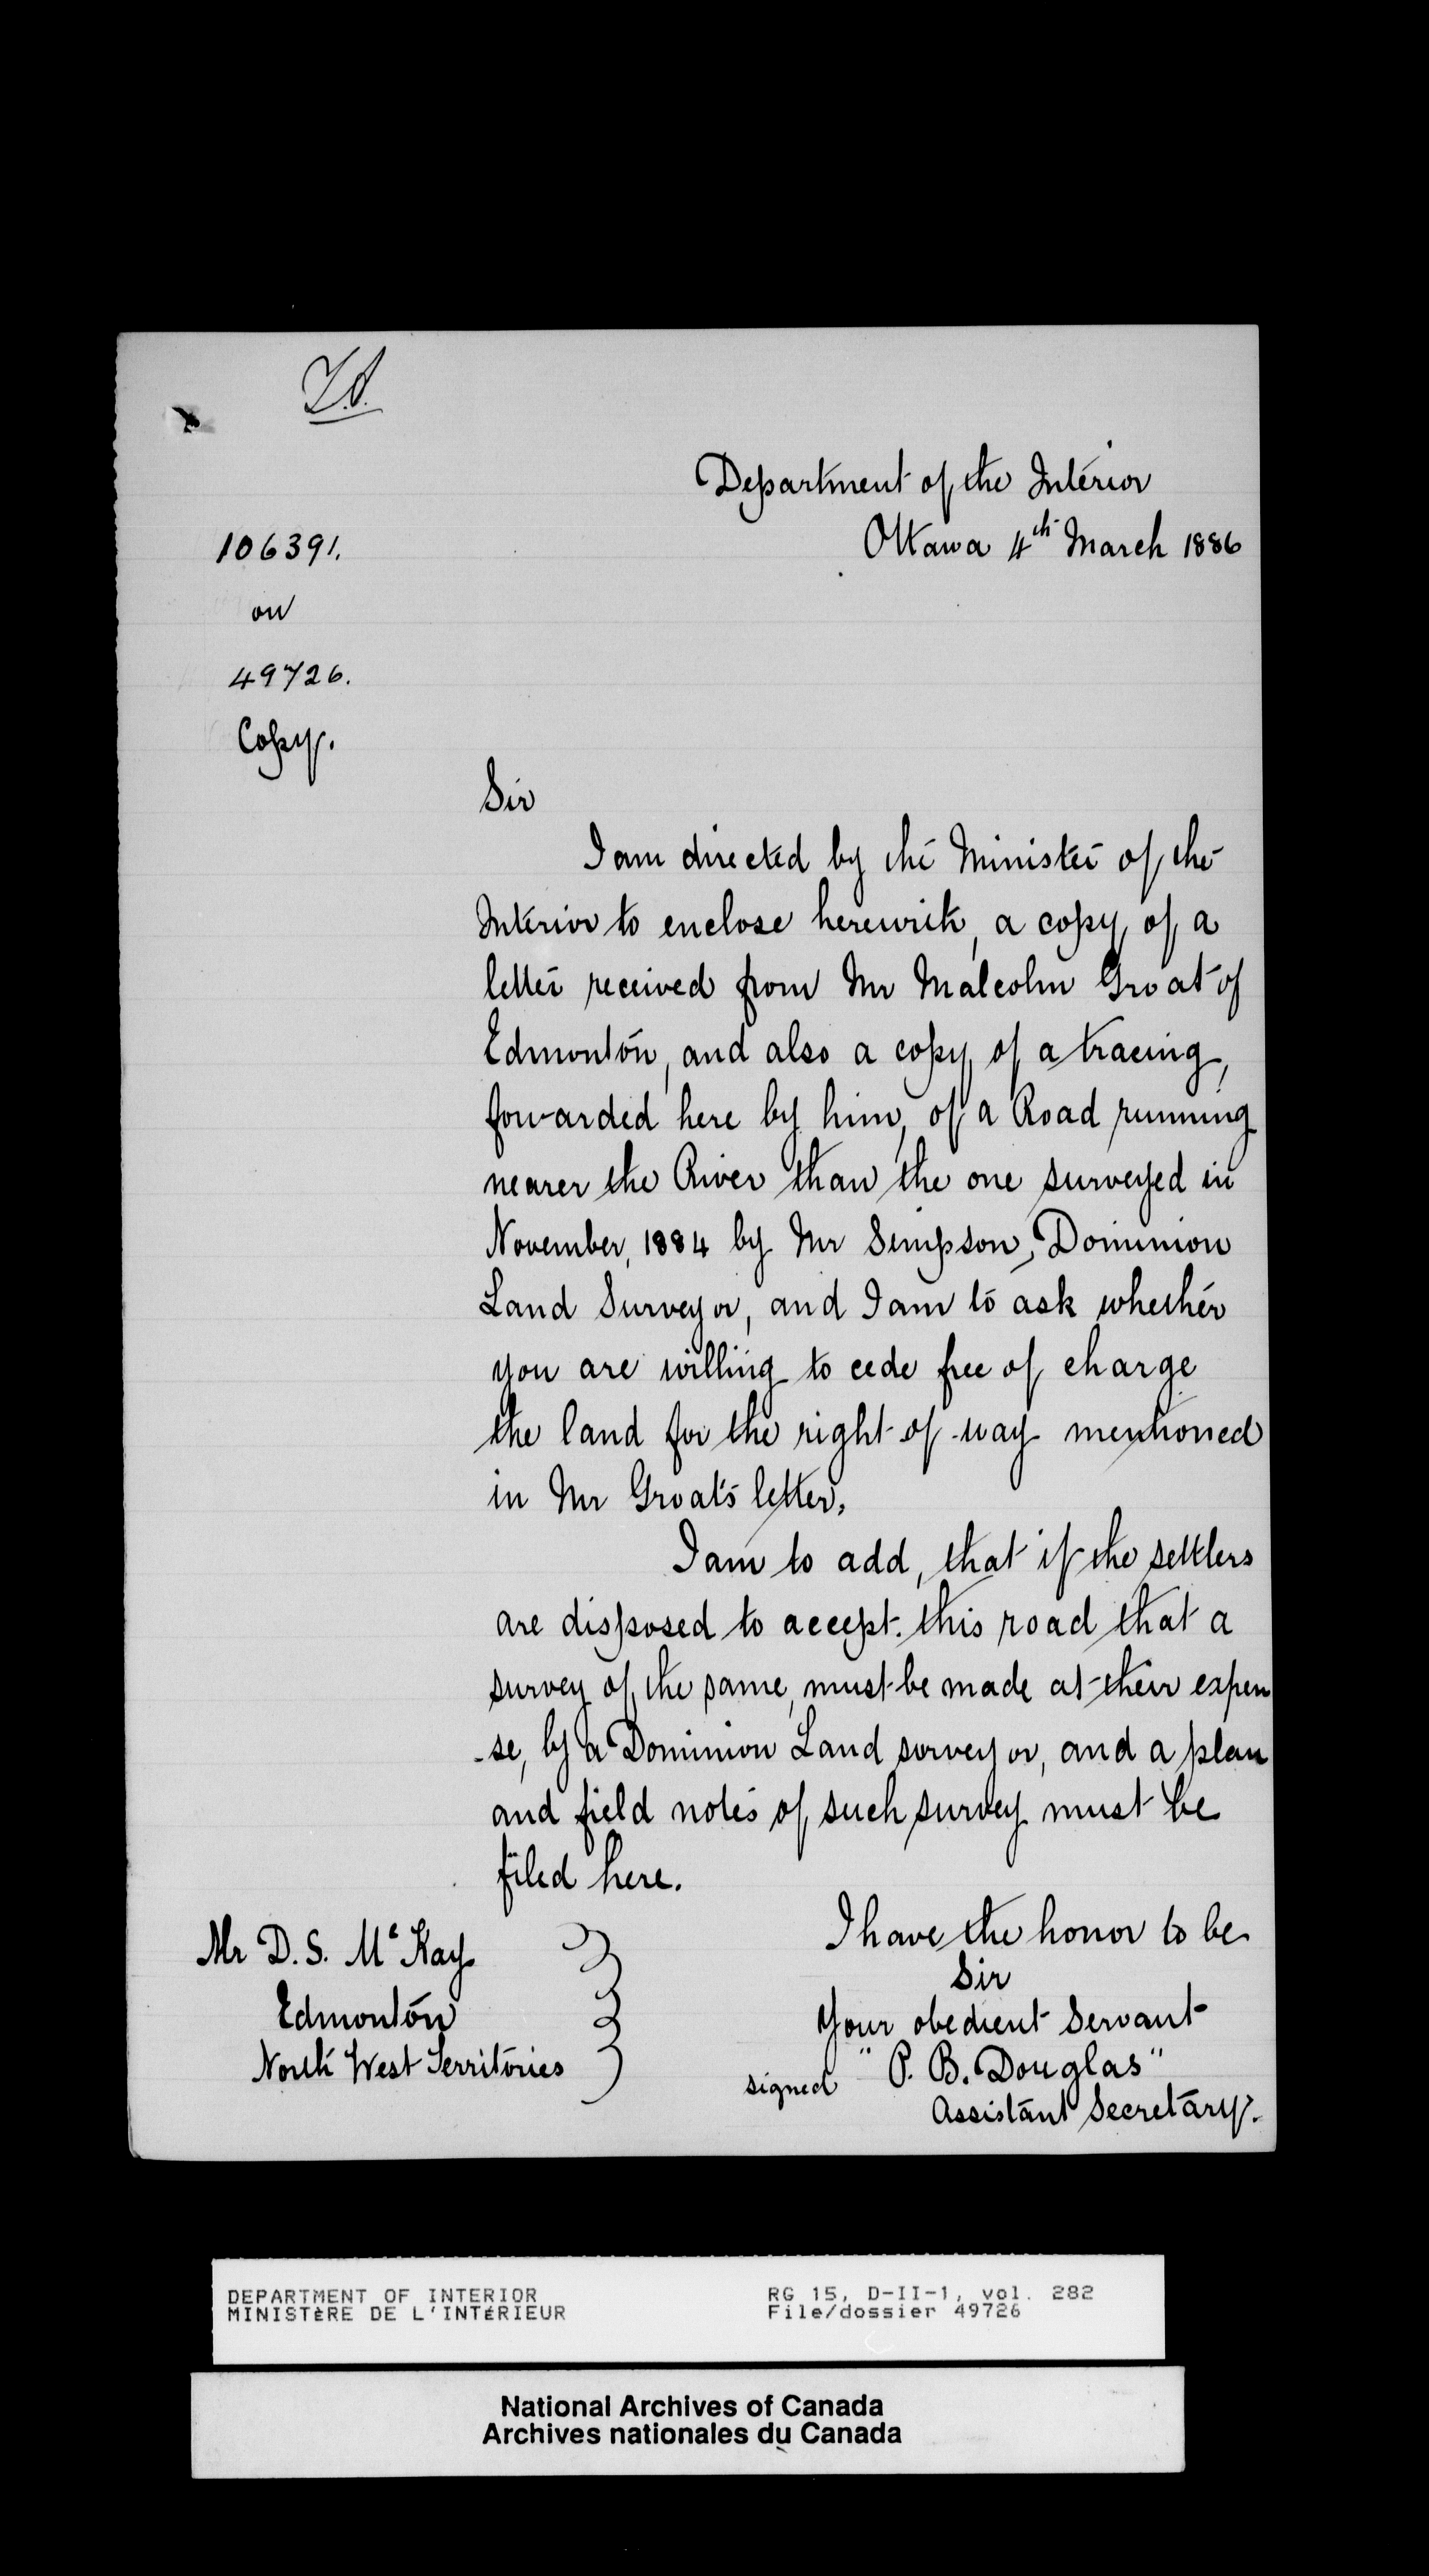 Department of the Interior
Ottawa 4th March 1886
106391.
on
49726.
Copy.
Sir
I am directed by the Minister of the
Interior to enclose herewith, a copy of a
letter received from Mr Malcolm Groat of
Edmonton, and also a copy of a tracing,
forwarded here by him, of a Road running
nearer the River than the one surveyed in
November, 1884 by Mr Simpson, Dominion
Land Surveyor, and I am to ask whether
you are willing to cede free of charge
the land for the right-of-way mentioned
in Mr Groat's letter.
I am to add, that if the settlers
are disposed to accept this road that a
survey of the same, must be made at their expen
-se, by a Dominion Land surveyor, and a plan
and field notes of such survey must be
filed here.
I have the honor to be
Sir
Your obedient Servant
signed "P. B. Douglas"
Assistant Secretary.
Mr D. S. McKay
Edmonton
North West Territories
DEPARTMENT OF INTERIOR
MINISTÈRE DE L'INTÉRIEUR
RG 15, D-II-1, vol. 282
File/dossier 49726
National Archives of Canada
Archives nationales du Canada